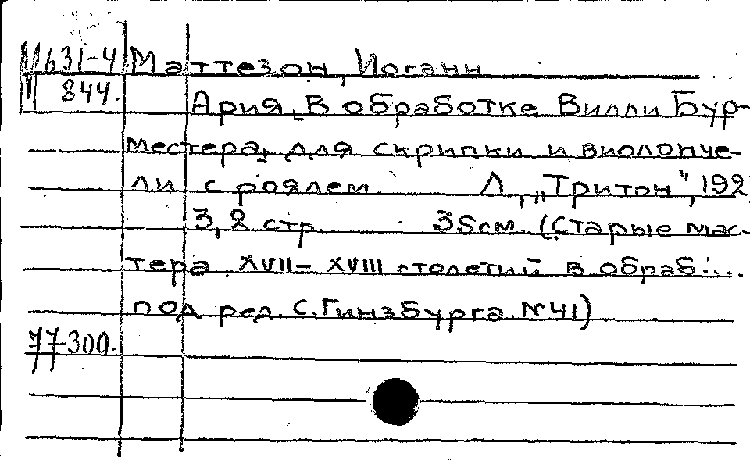 М631-4 Маттезон, Иоганн
844. Ария. В обработке Вилли Бур-
местера, для скрипки и виолонче-
ли с роялем. Л., „Тритон", 192
3, 2 стр. 35см. (Старые мас-
тера XVII-XVIII столетий в обраб...
под ред. С. Гинзбурга. №41)
77-300.